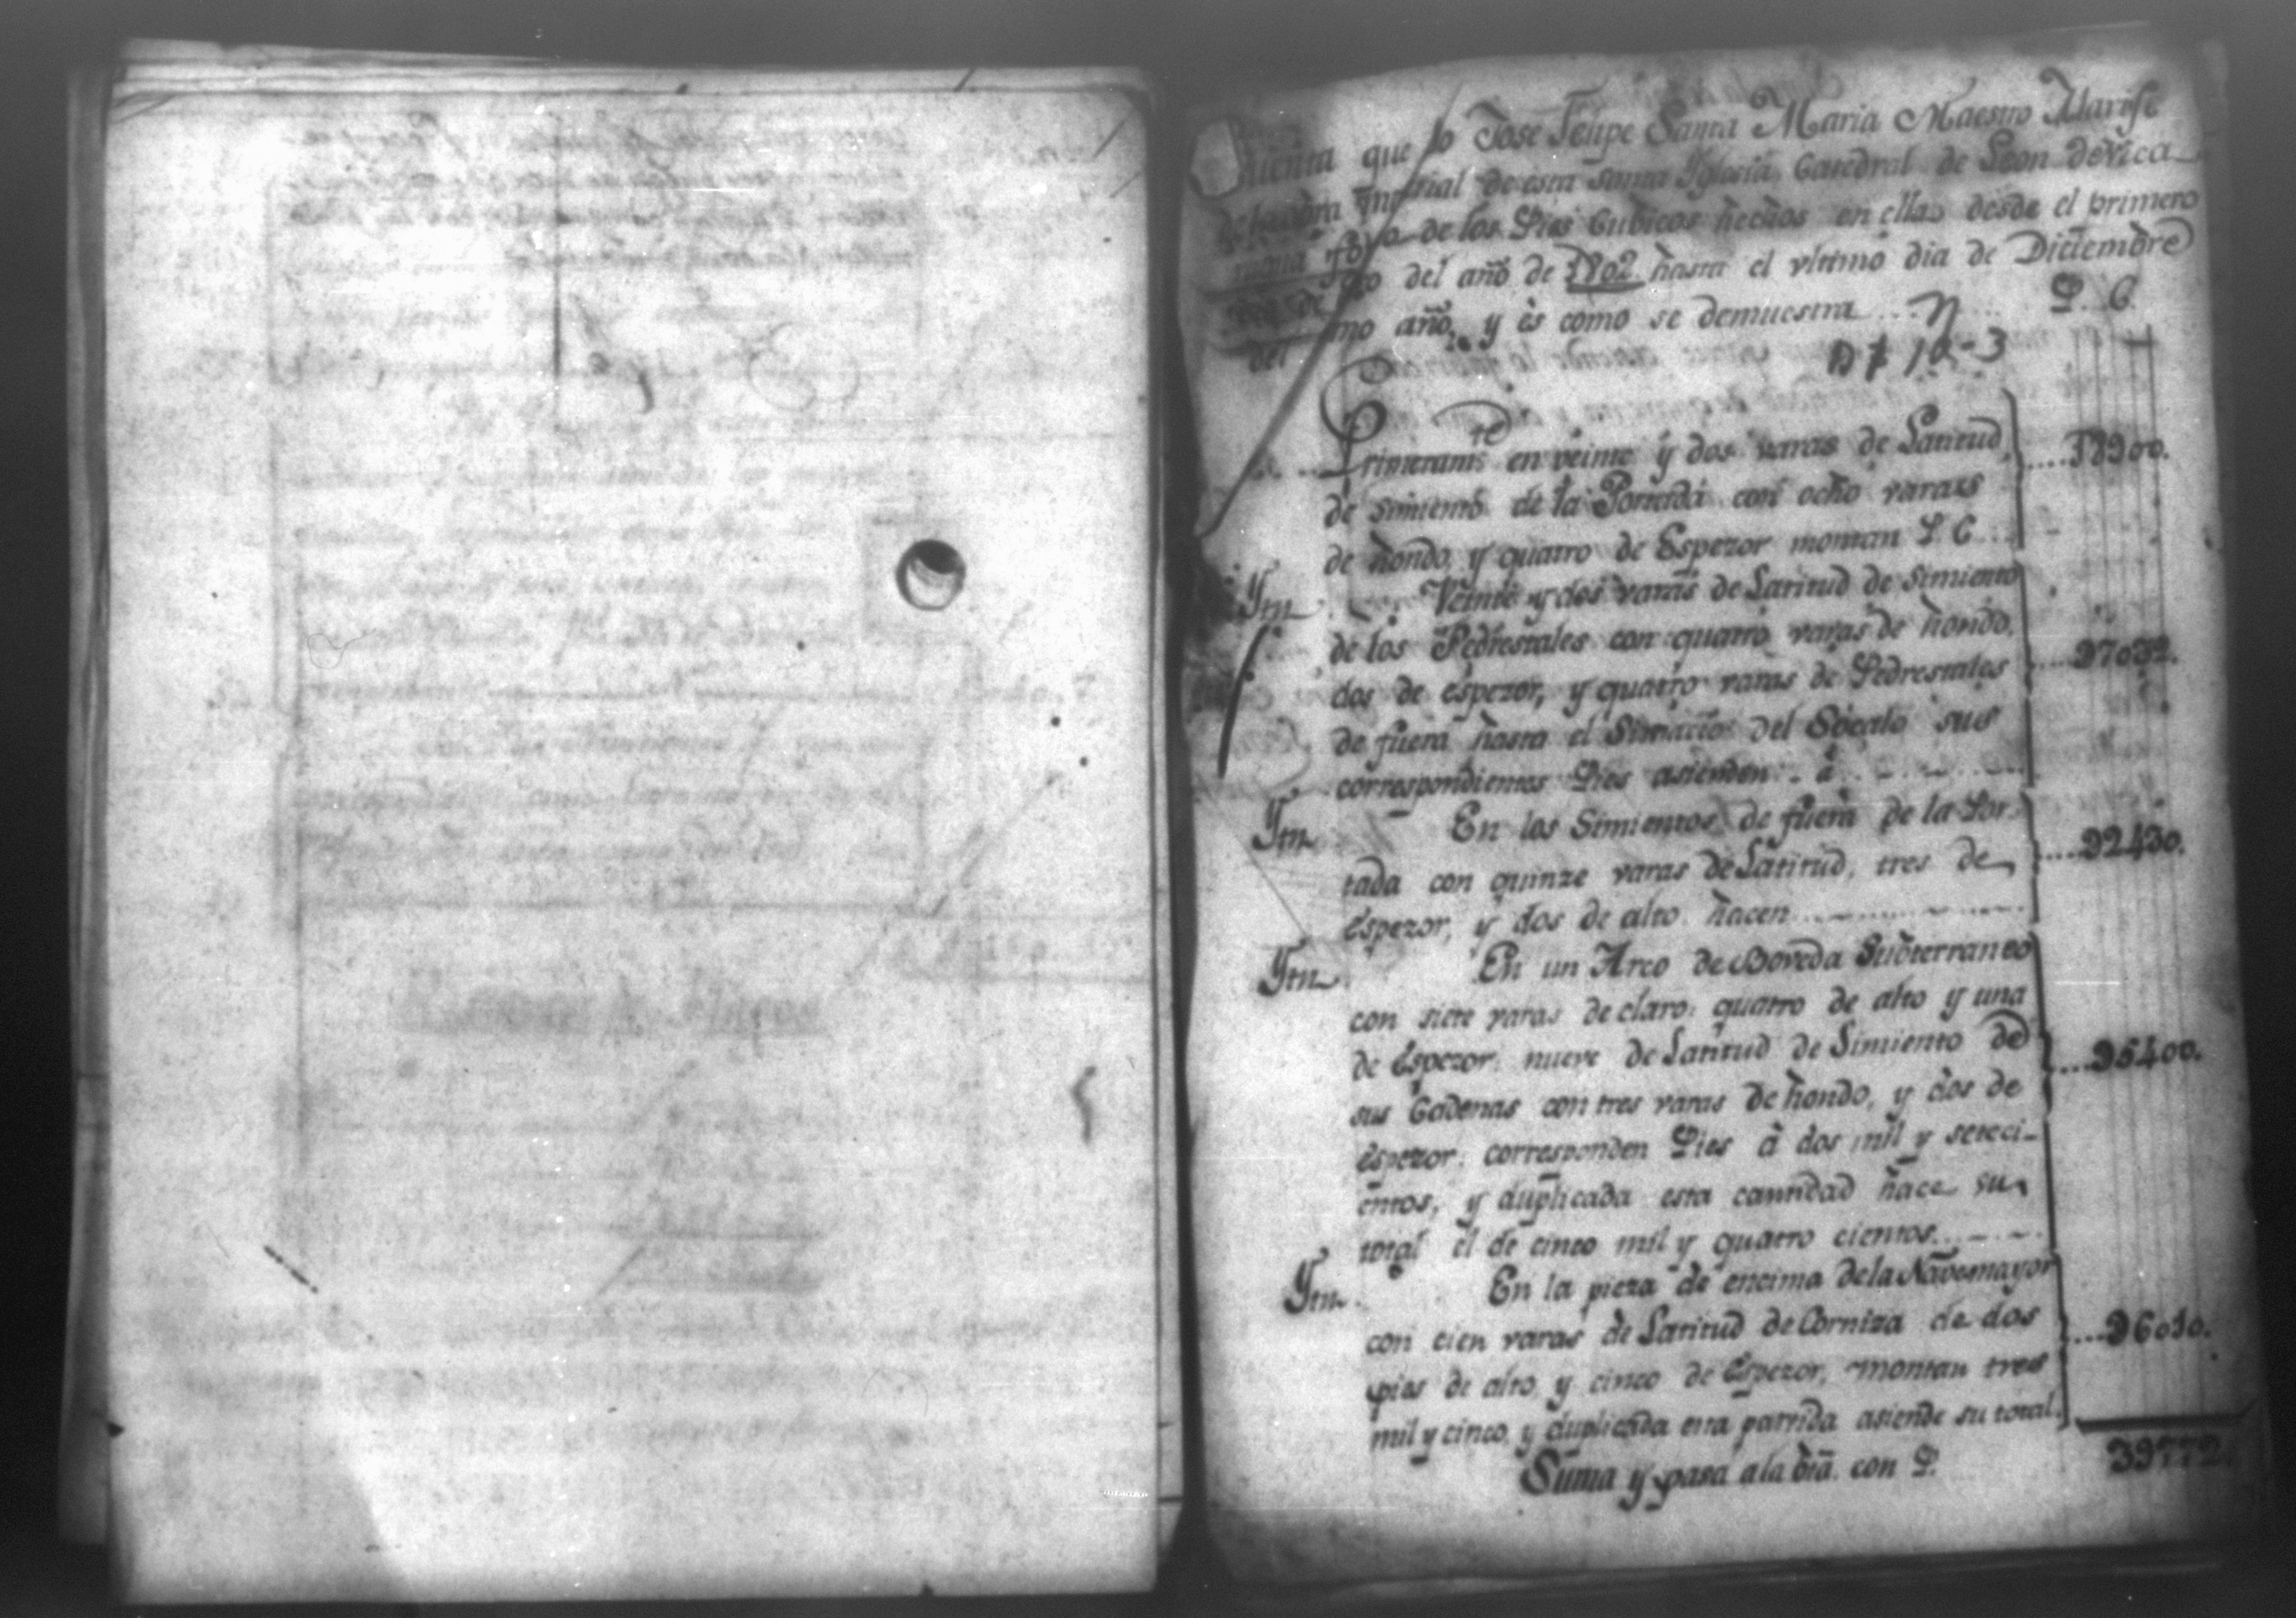 Cuenta que Yo Jose Felipe Santa Maria Maestro Alarife
de la obra material de esta Santa Iglesia Catedral de Leon de Nica
ragua de los Pies Cubicos hechos en ella desde el primero
del año de 1802 hasta el vltimo dia de Diciembre
del mo año, y es como se demuestra P. C.
Primeramte en veinte y dos varas de Latitud, 18900.
de simiento de la Portada con ocho varas
de hondo, y quatro de Espezor montan P C
Ytn Veinte y dos varas de Latitud de simiento
de los Pedrestales con quatro varas de hondo,
dos de espezor, y quatro varas de Pedrestales
de fuera hasta el del Socalo sus
correspondientes Pies asienden à
Ytn En los Simientos de fuera de la Por
tada con quinze varas de Latitud, tres de 92430.
Espezor, y dos de alto hacen
Ytn En un Arco de Boveda Subterraneo
con siete varas de claro: quatro de alto y una
de Espezor: nueve de Latitud de Simiento de 95400.
sus Cadenas con tres varas de hondo, y dos de
espezor: corresponden Pies à dos mil y seteci-
entos, y duplicada esta cantidad hace su
total el de cinco mil y quatro cientos
Ytn En la pieza de encima de la Nave mayor
con cien varas de Latitud de Corniza de dos 96010.
pies de alto, y cinco de Espezor, montan tres
mil y cinco, y duplicada esta partida asiende su total.
Suma y pasa a la bta. con P. 39772.